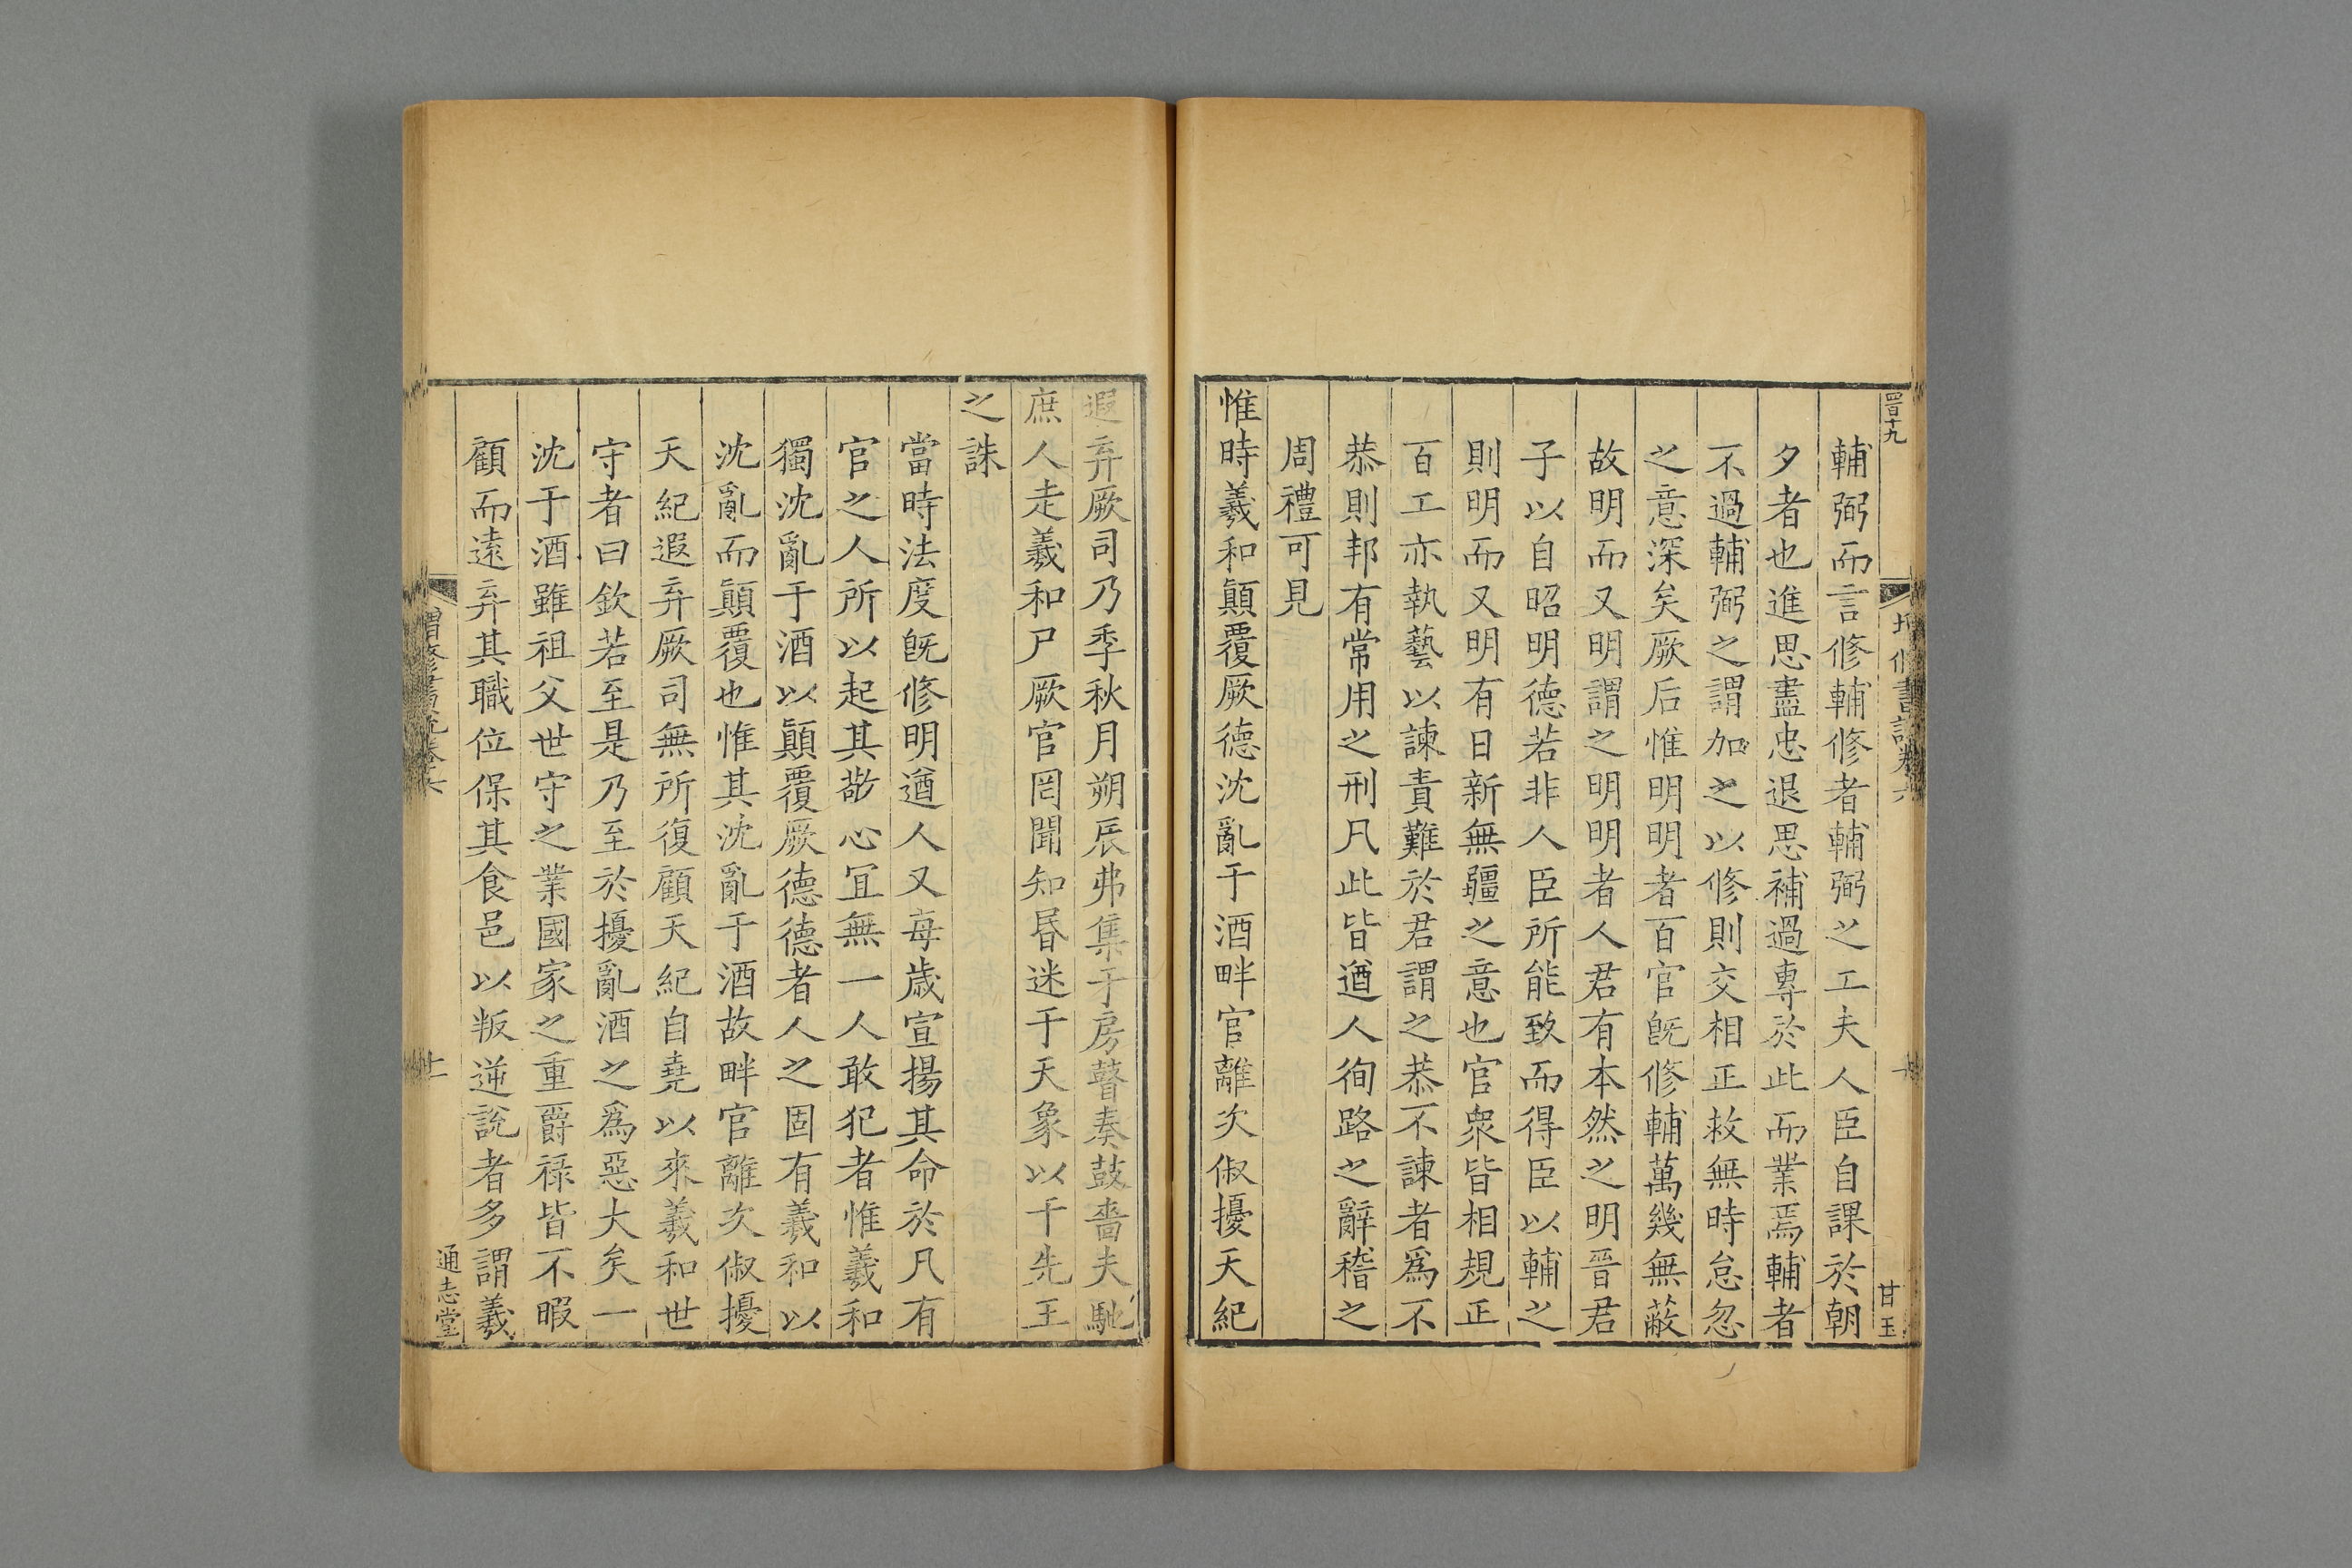 四百十九
修書說卷六
甘玉
輔弼而言修輔修者輔弼之工夫人臣自課於朝
夕者也進思盡忠退思補過專於此而業焉輔者
不過輔弼之謂加之以修則交相正救無時怠忽
之意深矣厥后惟明明者百官旣修輔萬幾無蔽
故明而又明謂之明明者人君有本然之明晉君
子以自昭明德若非人臣所能致而得臣以輔之
則明而又明有日新無疆之意也官衆皆相規正
百工亦執藝以諫責難於君謂之恭不諫者爲不
恭則邦有常用之刑凡此皆遒人徇路之辭稽之
周禮可見
惟時羲和顚覆厥德沈亂于酒畔官離次俶擾天紀
遐弃厥司乃季秋月朔辰弗集于房瞽奏鼓嗇夫馳
庶人走羲和尸厥官罔聞知昏迷于天象以干先王
之誅
當時法度旣修明遒人又每歲宣揚其命於凡有
官之人所以起其敬心宜無一人敢犯者惟羲和
獨沈亂于酒以顚覆厥德德者人之固有羲和以
沈亂而顚覆也惟其沈亂于酒故畔官離次俶擾
天紀遐弃厥司無所復顧天紀自堯以來羲和世
守者曰欽若至是乃至於擾亂酒之爲惡大矣一
沈于酒雖祖父世守之業國家之重爵祿皆不暇
顧而遠弃其職位保其食邑以叛逆說者多謂羲
增修書說卷六
廿一
通志堂